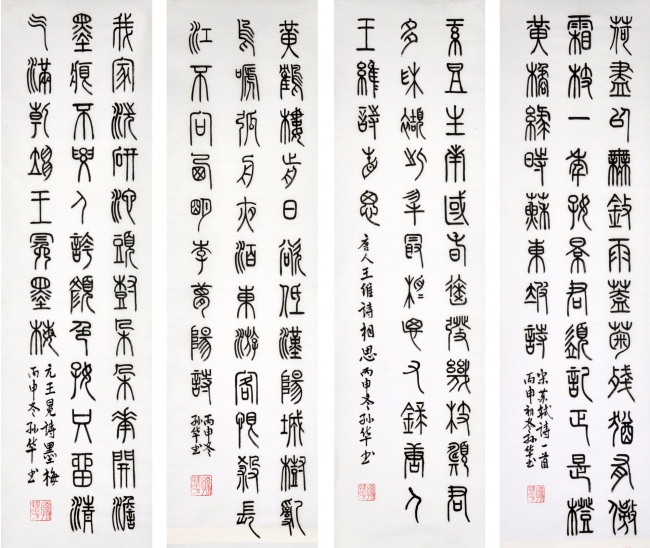 荷盡已無擎雨蓋菊殘猶有傲
霜枝一年好景君須記正是橙
黃橘綠時蘇東坡詩
宋苏轼诗一首
丙申初冬孙华书
紅豆生南國春來發幾枝願君
多采擷此物最相思又錄唐人
王維詩相思
唐人王维诗相思丙申冬孙华书
黃鶴樓前日欲低漢陽城樹亂
烏啼孤舟夜泊東游客恨殺長
江不向西明李夢陽詩
丙申冬
孙华书
我家洗研池頭樹朵朵華開澹
墨痕不要人誇顏色好只留清
气滿乾坤王冕墨梅
元王冕诗墨梅
丙申冬孙华书